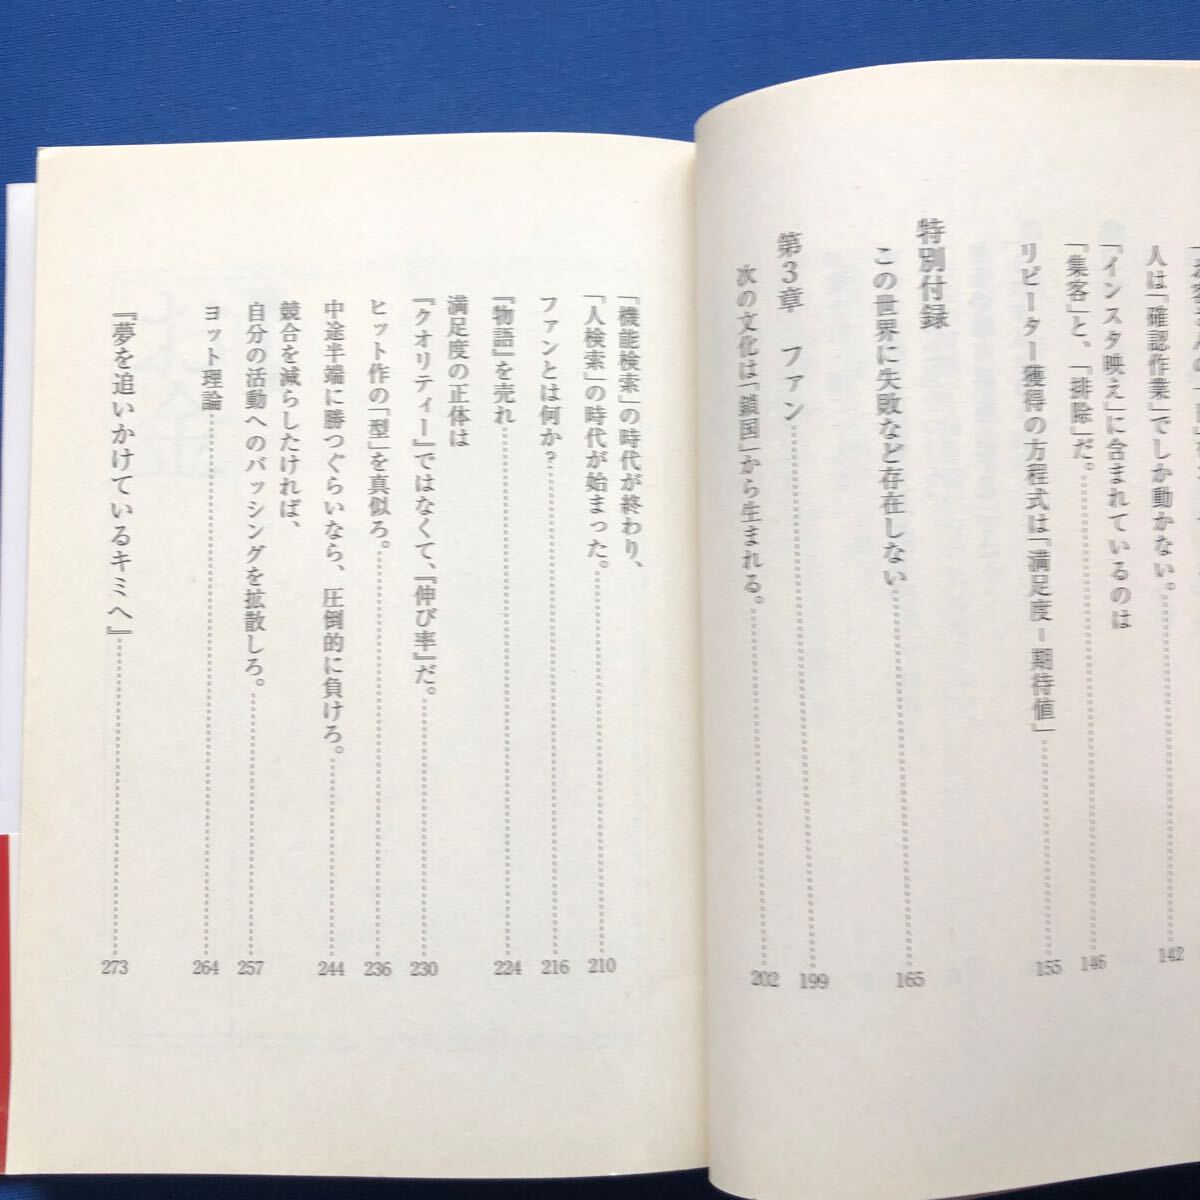 人は「確認作業」でしか動かない。 142
「インスタ映え」に含まれているのは
「集客」と、「排除」だ。 146
リピーター獲得の方程式は「満足度－期待値」 155
特別付録
この世界に失敗など存在しない 165
第3章　ファン 199
次の文化は「鎖国」から生まれる。 202
「機能検索」の時代が終わり、
「人検索」の時代が始まった。 210
ファンとは何か？ 216
『物語』を売れ 224
満足度の正体は
『クオリティー』ではなくて、『伸び率』だ。 230
ヒット作の「型」を真似ろ。 236
中途半端に勝つぐらいなら、圧倒的に負けろ。 244
競合を減らしたければ、
自分の活動へのバッシングを拡散しろ。 257
ヨット理論 264
『夢を追いかけているキミへ』 273